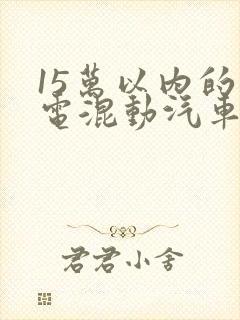 15萬以內的
電混動汽車
君君小舍